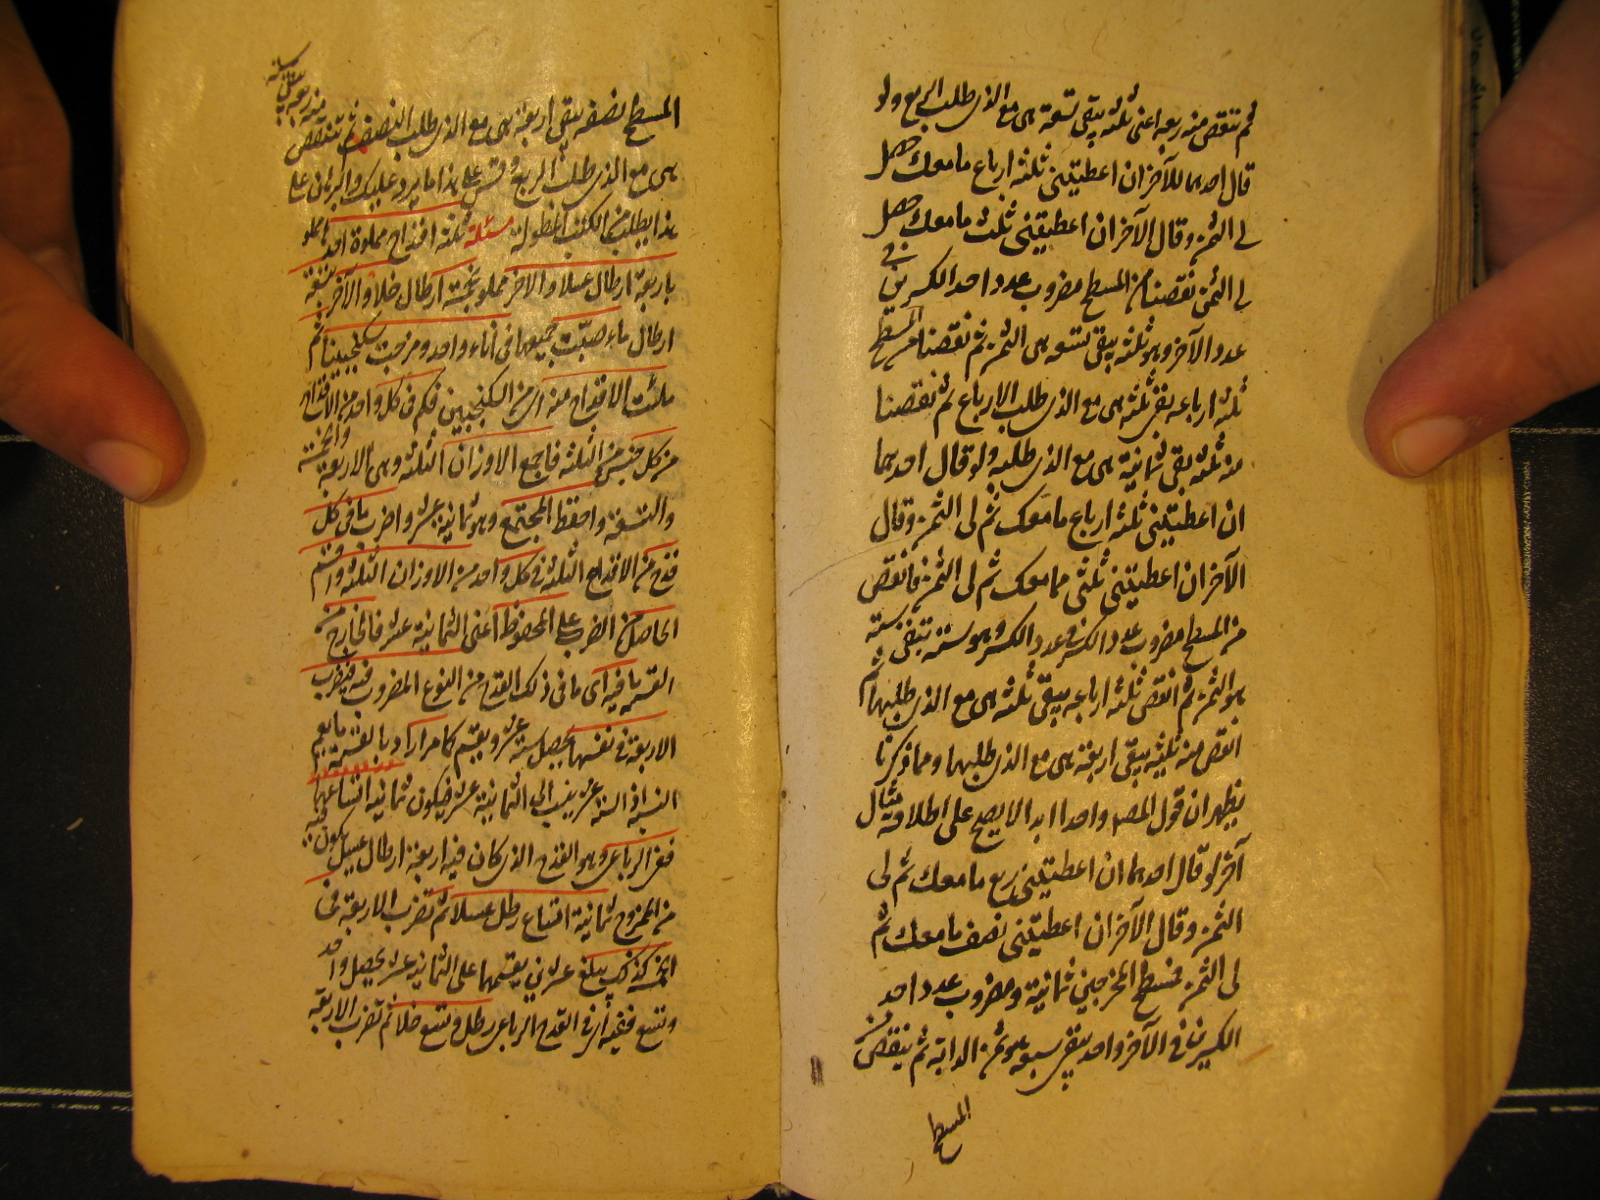 ثم تنقص منه ربعه اعنى ثلثه يبقى تسعة هى مع الذى طلب الربع ولو
قال احدهما للآخر ان اعطيتنى ثلثة ارباع ما معك حصل
لى الثمن وقال الآخر ان اعطيتنى ثلث ما معك حصل
لى الثمن نقصنا من المسطح مضروب عدد احد الكسرين فى
عدد الآخر وهو ثلثه يبقى تسعه هى الثمن ثم نقصنا من المسطح
ثلثه ارباعه بقى ثلثه هى مع الذى طلب الارباع ثم نقصنا
منه ثلثه بقى ثمانية هى مع الذى طلبه ولو قال احدهما
ان اعطيتنى ثلثه ارباع ما معك ثم لى الثمن وقال
الآخر ان اعطيتنى ثلثى ما معك ثم لى الثمن فانقص
من المسطح مضروب عدد الكسر فى عدد الكسر وهو ستة تبقى ستة
هو الثمن ثم انقص ثلثه ارباعه يبقى ثلثه هى مع الذى طلبها ثم
انقص منه ثلثيه يبقى اربعة هى مع الذى طلبهما ومما ذكرنا
يظهر ان قول المصـ واحدا ابدا لا يصح على اطلاقه مثال
آخر لو قال احدهما ان اعطيتنى ربع ما معك ثم لى
الثمن وقال الآخر ان اعطيتنى نصف ما معك ثم
لى الثمن فمسطح المخرجين ثمانية ومضروب عدد احد
الكسرين فى الآخر واحد يبقى سبعه هو ثمن الدابة ثم ينقص من
المسطح
المسطح نصفه يبقى اربعة هى مع الذى طلب النصف ثم تنقص
منه ربعه يبقى ستة
هى مع الذى طلب الربع وقس على هذا ما يرد عليك والبرهان على
هذا يطلب من الكتب المطولة مسئلة ثلثه اقداح مملوة احدها مملو
باربعة ارطال عسلا والآخر مملو بخمسة ارطال خلا والآخر بتسعة
ارطال ماء صبت جميعها فى اناء واحد ومزجت سكنجبينا ثم
ملئت الاقداح منه اى من السكنجبين فكم فى كل واحد من الاقداح
من كل جنس من الثلثه فاجمع الاوزان الثلثة وهى الاربعة والخمسة
والتسعة واحفظ المجتمع وهو ثمانية عشر واضرب ما فى كل
قدح من الاقداح الثلثة فى كل واحد من الاوزان الثلثة واقسم
الحاصل من الضرب على المحفوظ اعنى الثمانية عشر فالخارج من
القسمة ما فيه اى ما فى ذلك القدح من النوع المضروب فيه فيضرب
الاربعة فى نفسها يحصل ستة عشر ويقسم كما مر اراد بالقسمة ما يعم
النسبة اذ الستة عشر ينسب الى الثمانية عشر فيكون ثمانية اتساعها
ففى الرباعى وهو القدح الذى كان فيه اربعة ارطال عسل يكون فيه
من الممزوج ثمانية اتساع رطل عسلا ثم تضرب الاربعة فى
الخمسة كذلك يبلغ عشرين يقسمها على الثمانية عشر يحصل واحد
وتسع ففيه اى فى القدح الرباعى رطل وتسع خلا ثم تضرب الاربعة